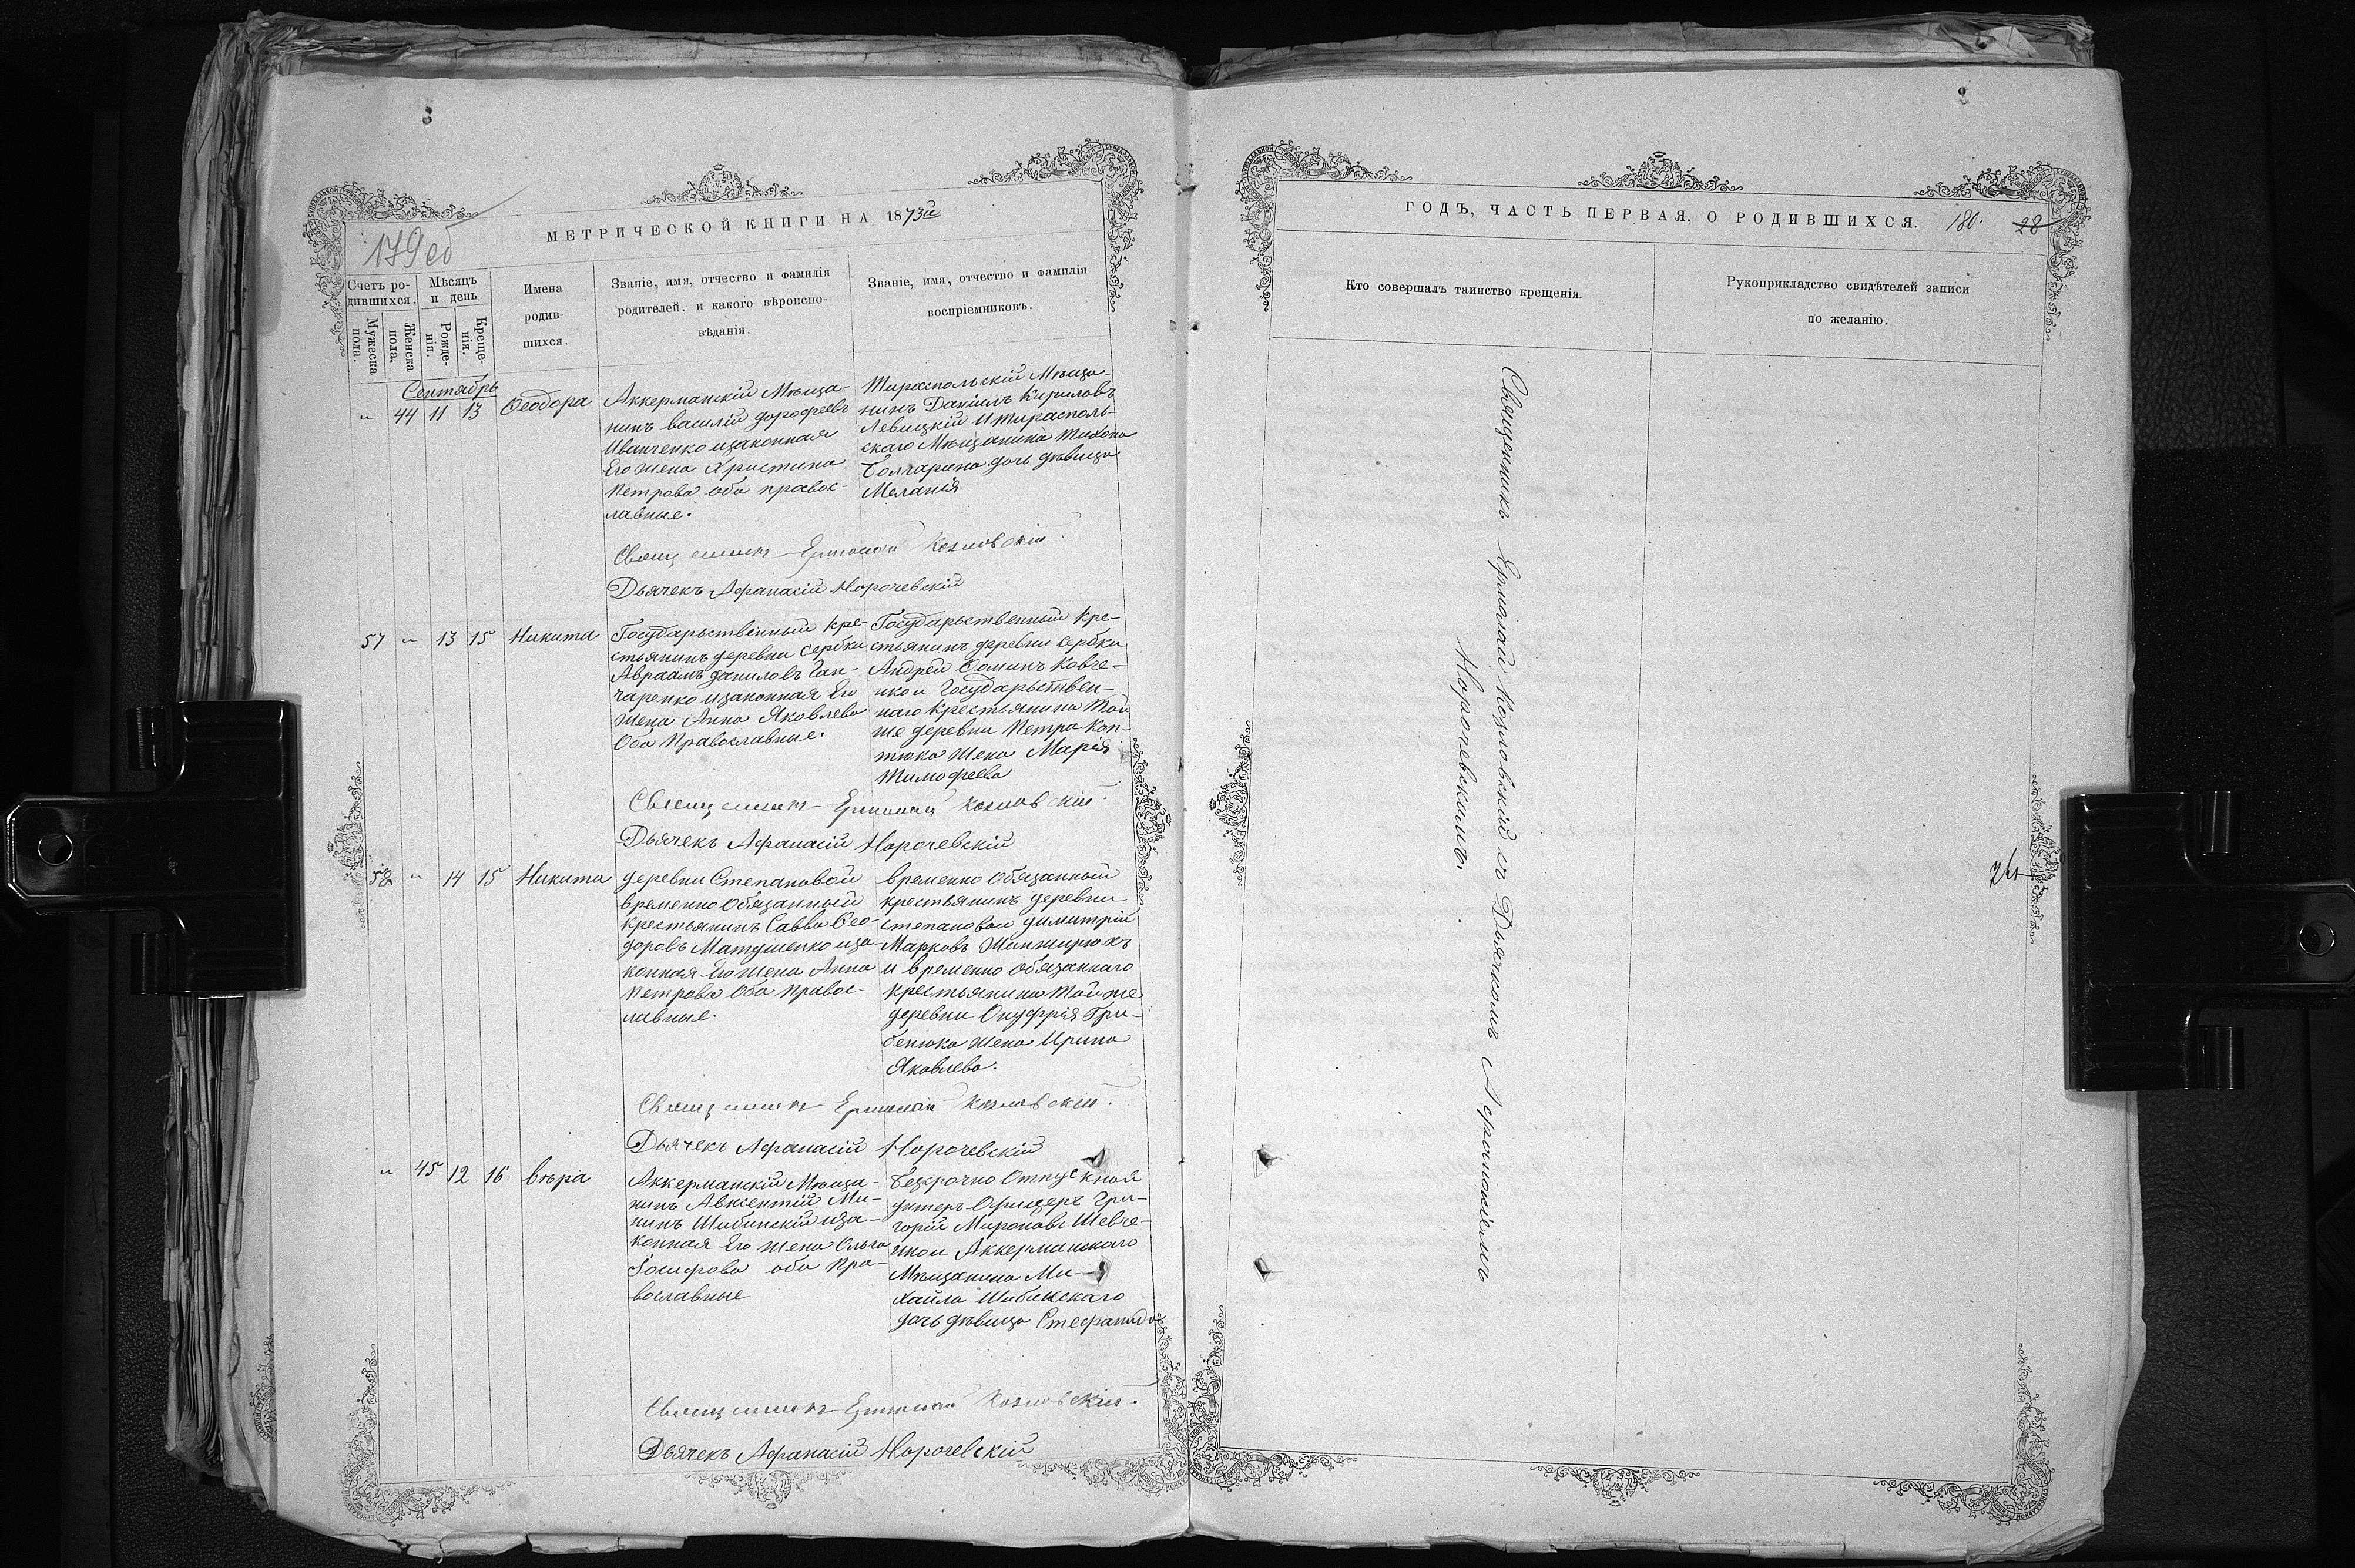 МЕТРИЧЕСКОЙ КНИГИ НА 1873й
179 об
Счетъ ро-
дившихся.
Мужеска
пола.
Женска
пола.
Мѣсяцъ
и день
Рожде-
нія.
Креще-
нія.
Имена
родив-
шихся.
Званіе, имя, отчество и фамилія
родителей, и какого вѣроиспо-
вѣданія.
Званіе, имя, отчество и фамилія
воспріемниковъ.
Сентябрь
" 44 11 13 Ѳеодора
Аккерманскій Мѣща-
нинъ василій дорофеевъ
Иванченко изаконная
Его жена Христина
Петрова оба правос-
лавные.
Тираспольскій Мѣща-
нинъ Даніилъ Кириловъ
Левицкій И тирасполь-
скаго Мѣщанина Тихона
Болгарина дочь дѣвица
Меланія
Священникъ Ермолай Козловскій
Дьячекъ Афанасій Норочевскій
57 " 13 15 Никита
Государьственный кре-
стьянинъ деревни сербки
Авраамъ даниловъ Ган-
чаренко изаконная Его
жена Анна Яковлева
Оба Православные.
Государьственный кре-
стьянинъ деревни сербки
Андрей Ѳоминъ Ковче-
нко и Государьствен-
наго крестьянина Той
же деревни Петра Коп-
тюка жена Марія
Тимофеева
Священникъ Ермолай Козловскій
Дьячекъ Афанасій Норочевскій
58 " 14 15 Никита
деревни Степановой
временно Обязанный
крестьянинъ Савва Ѳео-
доровъ Матушенко иза-
конная Его жена Анна
Петрова Оба Правос-
лавные.
временно Обязанный
крестьянинъ деревни
степановой димитрій
Марковъ
и временно обязаннаго
крестьянина Той же
деревни Онуфрія Гри-
бенюка жена Ирина
Яковлева.
Священникъ Ермолай Козловскій.
Дьячекъ Афанасій Норочевскій
" 45 12 16 вѣра
Аккерманскій Мѣща-
нинъ Авксентій Ми-
нинъ Шибинскій иза-
конная Его жена Ольга
Іосифова оба Пра-
вославные
Безсрочно Отпускной
унтеръ-Офицеръ Гри-
горій Мироновъ Шевче-
нко и Аккерманскаго
Мѣщанина Ми-
хайла Шибинскаго
дочь дѣвица Стефанида
Священникъ Ермолай Козловскій.
Дьячекъ Афанасій Норочевскій
ГОДЪ, ЧАСТЬ ПЕРВАЯ, О РОДИВШИХСЯ. 180. 28
Кто совершалъ таинство крещенія.
Рукоприкладство свидѣтелей записи
по желанію.
Священникъ Ермолай Козловскій съ Дьячкомъ Афанасіемъ
Норочевскимъ.